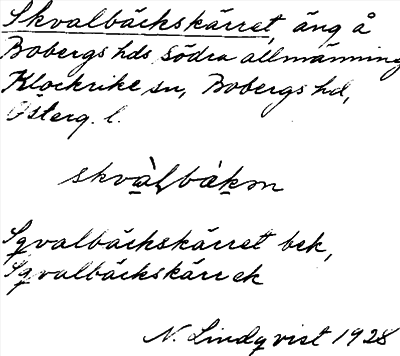 Skvalbäckskärret, äng å
Bobergs hds södra allmänning
Klockrike sn, Bobergs hd,
Österg. l.
skvàlbàkm
Sqvalbäckskärret bek,
Sqvalbäckskärr ek
N. Lindqvist 1928